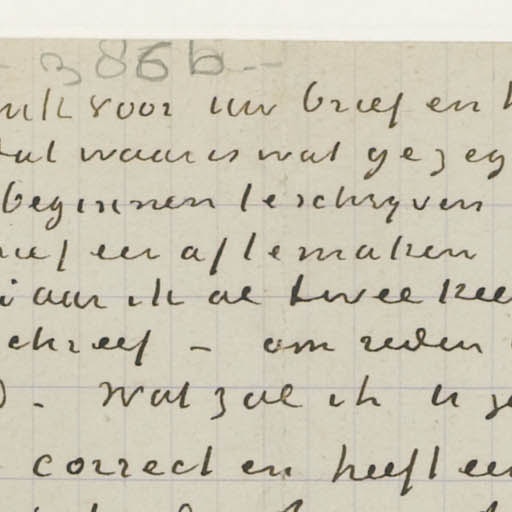 386b
voor uw brief en
waar is wat gezeg
beginnen te schrijven
een af te maken
waar ik al twee kee
schreef – om reden
). Wat zal ik u
correct en heeft een